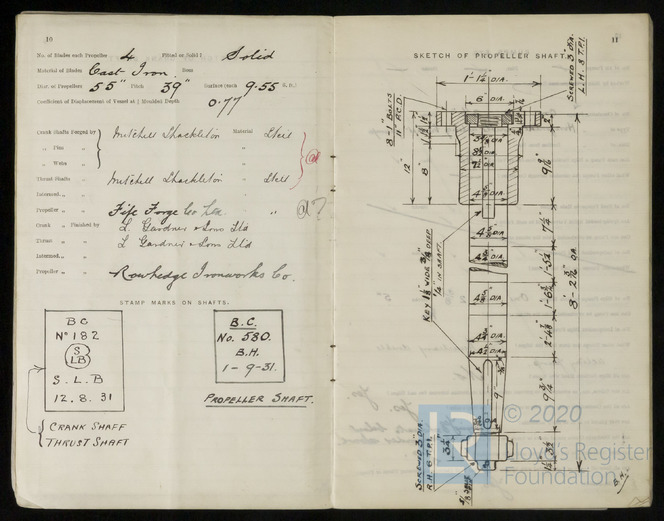 10
No. of Blades each Propeller 4 Fitted or Solid? Solid
Material of Blades Cast Iron. Boss
Diar. of Propellers 55" Pitch 39" Surface (each 9.55 S. ft.)
Coefficient of Displacement of Vessel at ¾ Moulded Depth 0.77
Crank Shafts Forged by Mitchell Shackleton Material Steel
" Pins "
" Webs "
Thrust Shafts " Mitchell Shackleton " Steel
Intermd. " "
Propeller " " Fife Forge Co Ltd "
Crank " Finished by L. Gardner & Sons Ltd
Thrust " " L. Gardner & Sons Ltd
Intermed. " "
Propeller " " Rowhedge Ironworks Co.
STAMP MARKS ON SHAFTS.
BC
No 182
S
LB
S. L. B
12. 8. 31
CRANK SHAFT
THRUST SHAFT
B.C.
No. 580.
B.H.
1-9-31.
PROPELLER SHAFT.
11
SKETCH OF PROPELLER SHAFT
SCREWED 3" DIA.
L.H. 8 T.P.I.
1'-1¼" DIA.
6" DIA.
8-1" BOLTS
11" P.C.D.
12"
8"
KEY 1⅛ WIDE
¼" IN SHAFT.
7¼"
9¾"
SCREWED 3" DIA.
R.H. 6 T.P.I.
B.H.
© 2020
Lloyd's Register
Foundation